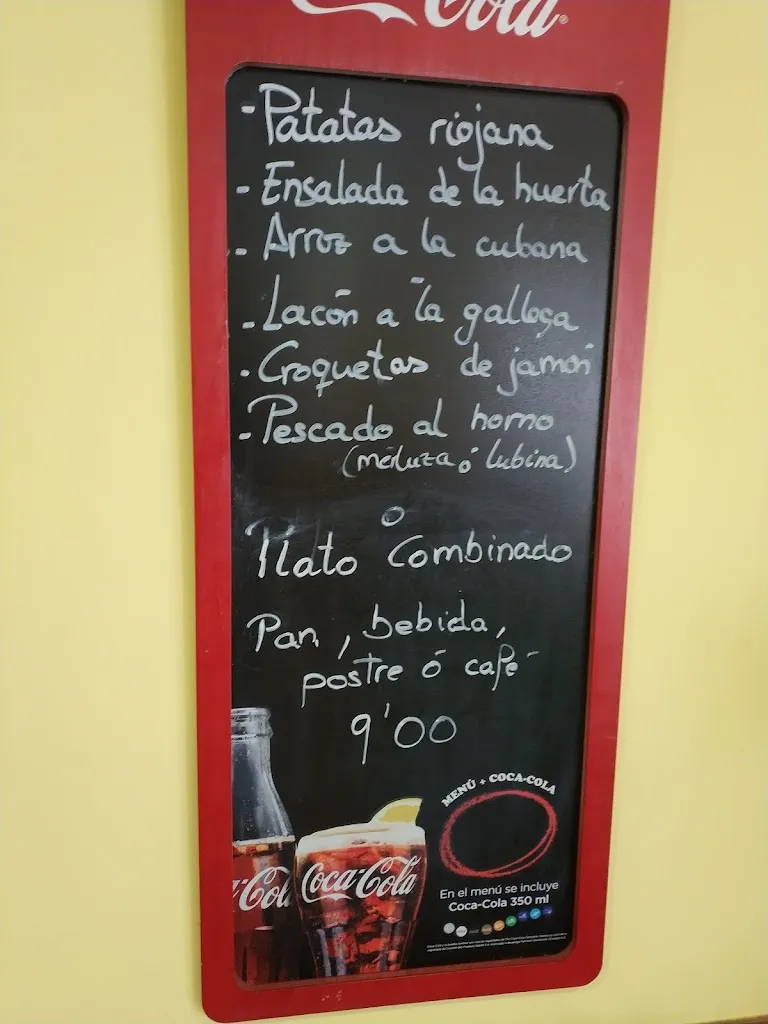 Cola
- Patatas riojana
- Ensalada de la huerta
- Arroz a la cubana
- Lacón a la gallega
- Croquetas de jamón
- Pescado al horno
(merluza ó lubina)
o
Plato Combinado
Pan, bebida,
postre ó café
9'00
MENÚ + COCA-COLA
Coca-Cola
En el menú se incluye
Coca-Cola 350 ml